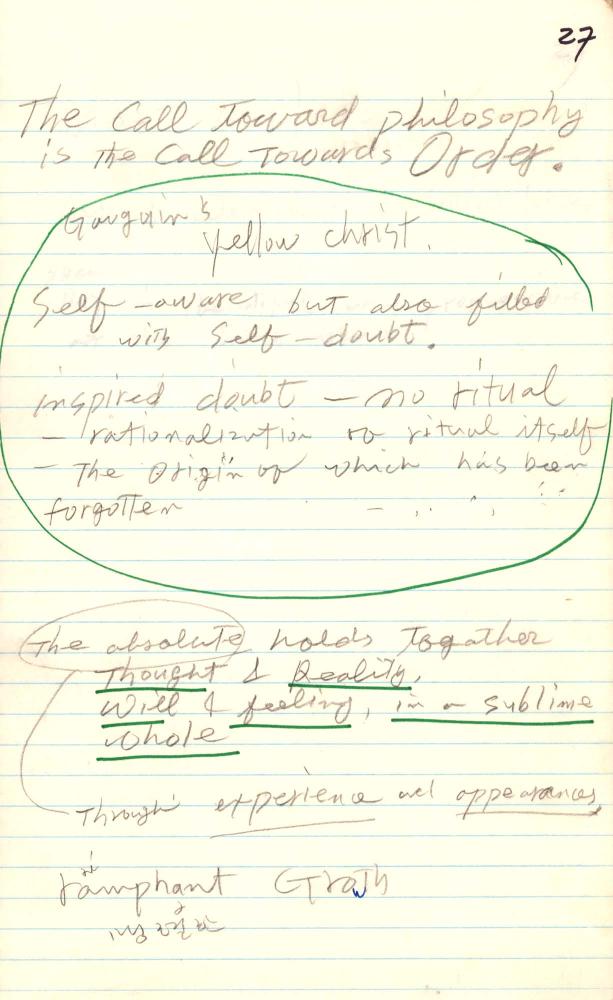 27
The Call Toward philosophy
is the Call Towards Order.
Gauguin's
yellow christ.
Self-aware but also filled
with Self-doubt.
inspired doubt — no ritual
— rationalization of ritual itself
— The Origin of which has been
forgotten
The absolute holds Together
Thought & Reality,
Will & feeling, in a sublime
whole
Through experience and appearances,
ramphant Growth